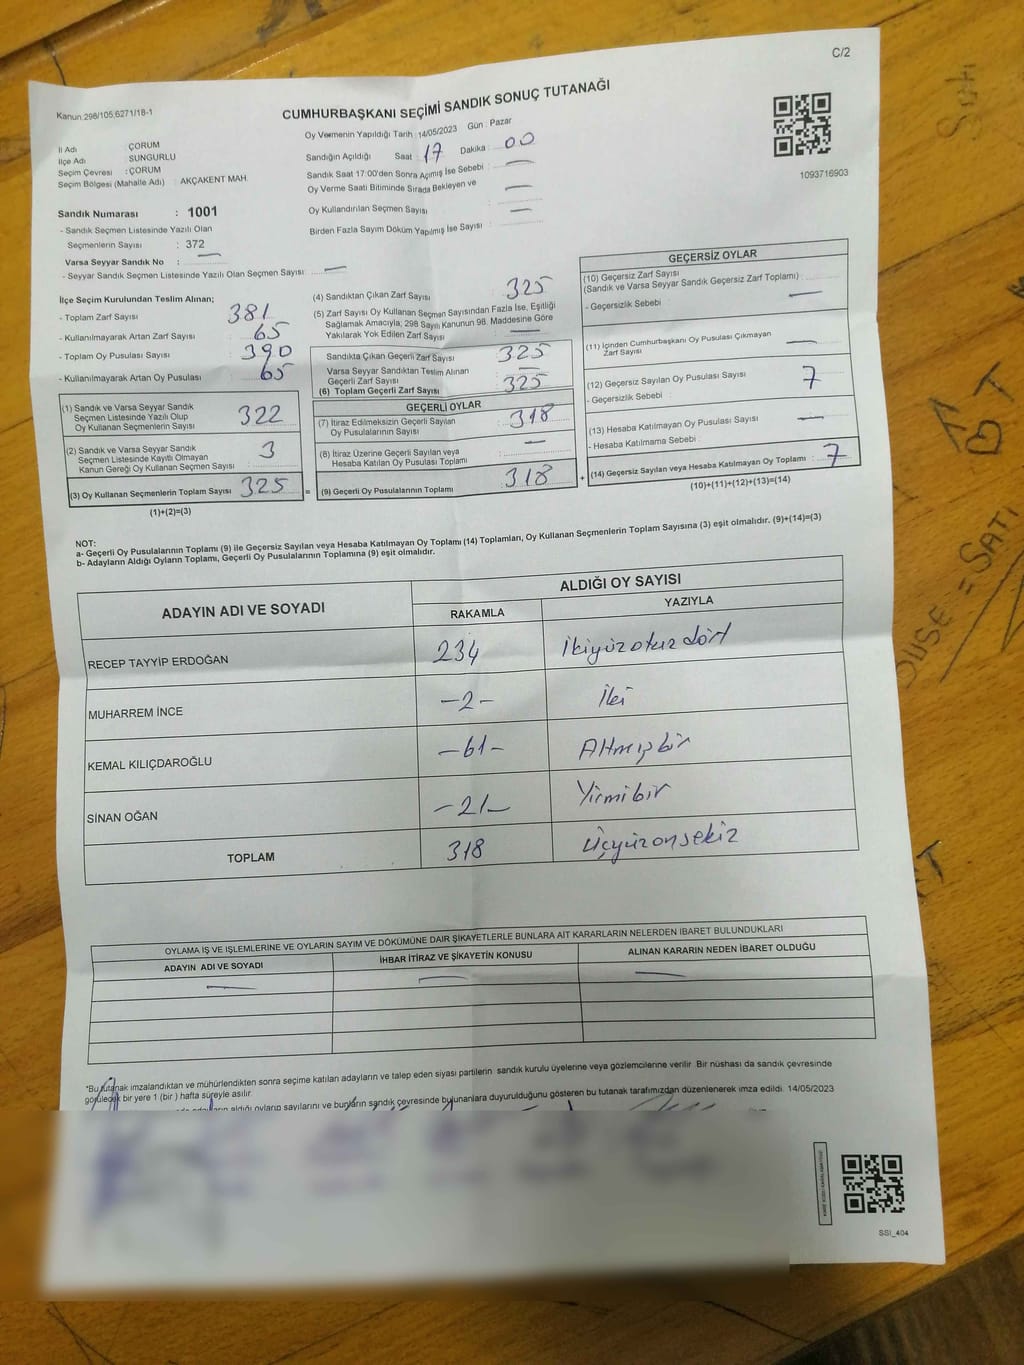 C/2
Kanun:298/105,6271/18-1
CUMHURBAŞKANI SEÇİMİ SANDIK SONUÇ TUTANAĞI
1093716903
İl Adı ÇORUM
İlçe Adı SUNGURLU
Seçim Çevresi : ÇORUM
Seçim Bölgesi (Mahalle Adı) : AKÇAKENT MAH.
Sandık Numarası : 1001
- Sandık Seçmen Listesinde Yazılı Olan
Seçmenlerin Sayısı : 372
Varsa Seyyar Sandık No : —
- Seyyar Sandık Seçmen Listesinde Yazılı Olan Seçmen Sayısı: —
Oy Vermenin Yapıldığı Tarih : 14/05/2023 Gün : Pazar
Sandığın Açıldığı Saat : 17 Dakika : 00
Sandık Saat 17:00'den Sonra Açmış İse Sebebi : —
Oy Verme Saati Bitiminde Sırada Bekleyen ve —
Oy Kullandırılan Seçmen Sayısı : —
Birden Fazla Sayım Döküm Yapılmış İse Sayısı :
İlçe Seçim Kurulundan Teslim Alınan;
- Toplam Zarf Sayısı : 381
- Kullanılmayarak Artan Zarf Sayısı : 65
- Toplam Oy Pusulası Sayısı : 390
- Kullanılmayarak Artan Oy Pusulası : 65
(1) Sandık ve Varsa Seyyar Sandık
Seçmen Listesinde Yazılı Olup
Oy Kullanan Seçmenlerin Sayısı : 322
(2) Sandık ve Varsa Seyyar Sandık
Seçmen Listesinde Kayıtlı Olmayan
Kanun Gereği Oy Kullanan Seçmen Sayısı : 3
(3) Oy Kullanan Seçmenlerin Toplam Sayısı : 325
(1)+(2)=(3)
(4) Sandıktan Çıkan Zarf Sayısı : 325
(5) Zarf Sayısı Oy Kullanan Seçmen Sayısından Fazla İse, Eşitliği
Sağlamak Amacıyla; 298 Sayılı Kanunun 98. Maddesine Göre
Yakılarak Yok Edilen Zarf Sayısı : —
Sandıkta Çıkan Geçerli Zarf Sayısı : 325
Varsa Seyyar Sandıktan Teslim Alınan
Geçerli Zarf Sayısı : —
(6) Toplam Geçerli Zarf Sayısı : 325
GEÇERLİ OYLAR
(7) İtiraz Edilmeksizin Geçerli Sayılan
Oy Pusulalarının Sayısı : 318
(8) İtiraz Üzerine Geçerli Sayılan veya
Hesaba Katılan Oy Pusulası Toplamı : —
= (9) Geçerli Oy Pusulalarının Toplamı : 318 +
GEÇERSİZ OYLAR
(10) Geçersiz Zarf Sayısı
(Sandık ve Varsa Seyyar Sandık Geçersiz Zarf Toplamı) : —
- Geçersizlik Sebebi :
(11) İçinden Cumhurbaşkanı Oy Pusulası Çıkmayan
Zarf Sayısı : —
(12) Geçersiz Sayılan Oy Pusulası Sayısı : 7
- Geçersizlik Sebebi :
(13) Hesaba Katılmayan Oy Pusulası Sayısı : —
- Hesaba Katılmama Sebebi :
(14) Geçersiz Sayılan veya Hesaba Katılmayan Oy Toplamı : 7
(10)+(11)+(12)+(13)=(14)
NOT:
a- Geçerli Oy Pusulalarının Toplamı (9) ile Geçersiz Sayılan veya Hesaba Katılmayan Oy Toplamı (14) Toplamları, Oy Kullanan Seçmenlerin Toplam Sayısına (3) eşit olmalıdır. (9)+(14)=(3)
b- Adayların Aldığı Oyların Toplamı, Geçerli Oy Pusulalarının Toplamına (9) eşit olmalıdır.
ADAYIN ADI VE SOYADI ALDIĞI OY SAYISI
RAKAMLA YAZIYLA
RECEP TAYYİP ERDOĞAN 234 İkiyüzotuzdört
MUHARREM İNCE -2- İki
KEMAL KILIÇDAROĞLU -61- Altmışbir
SİNAN OĞAN -21- Yirmibir
TOPLAM 318 üçyüzonsekiz
OYLAMA İŞ VE İŞLEMLERİNE VE OYLARIN SAYIM VE DÖKÜMÜNE DAİR ŞİKAYETLERLE BUNLARA AİT KARARLARIN NELERDEN İBARET BULUNDUKLARI
ADAYIN ADI VE SOYADI İHBAR İTİRAZ VE ŞİKAYETİN KONUSU ALINAN KARARIN NEDEN İBARET OLDUĞU
— — —
*Bu tutanak imzalandıktan ve mühürlendikten sonra seçime katılan adayların ve talep eden siyasi partilerin sandık kurulu üyelerine veya gözlemcilerine verilir. Bir nüshası da sandık çevresinde
görülecek bir yere 1 (bir) hafta süreyle asılır.
aldığı oyların sayılarını ve bunların sandık çevresinde bulunanlara duyurulduğunu gösteren bu tutanak tarafımızdan düzenlenerek imza edildi. 14/05/2023
SSI_404
= SATI